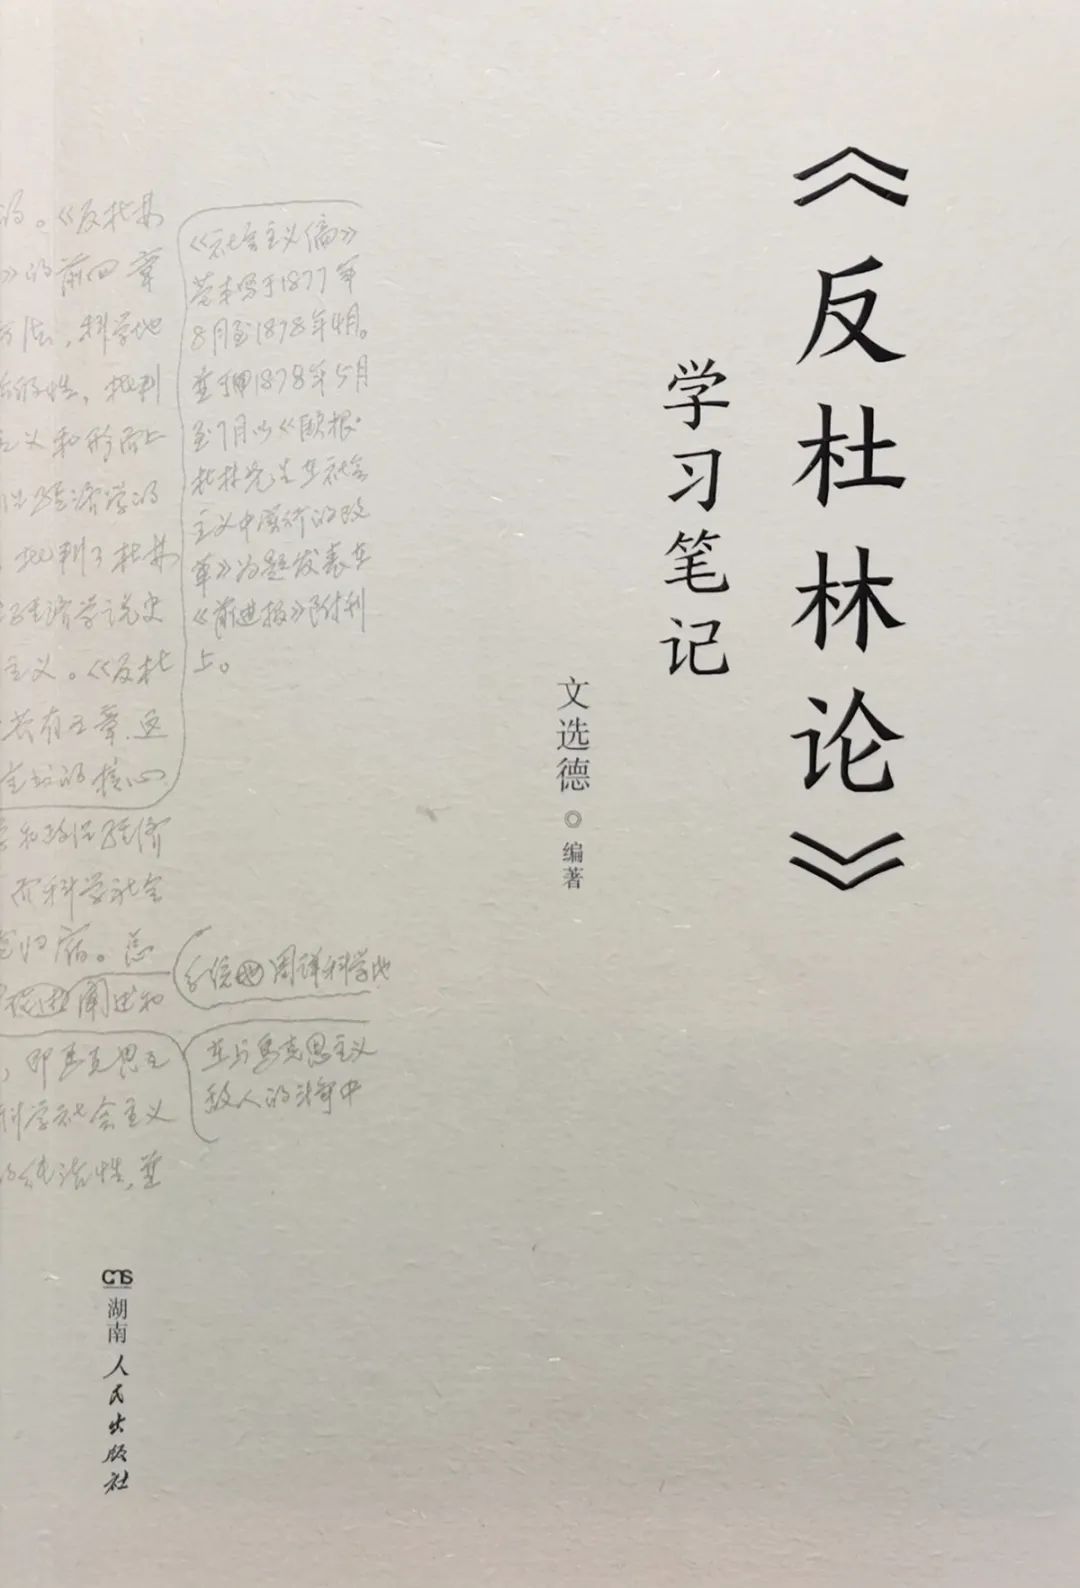 《反杜林论》
学习笔记
文选德◎编著
的。《反杜林
》的前四章
方法，科学地
级性，批判
主义和形而上
经济学的
批判了杜林
经济学说史
主义。《反杜
共有五章，这
的核心
和政治经济
而科学社会
归宿。总
阐述和
，即马克思主
科学社会主义
的纯洁性，并
《社会主义编》
基本写于1877年
8月至1878年4月。
并于1878年5月
至7月以《欧根·
杜林先生在社会
主义中实行的改
革》为题发表在
《前进报》附刊
上。
系统地周详科学地
在与马克思主义
敌人的斗争中
CNS
湖南人民出版社